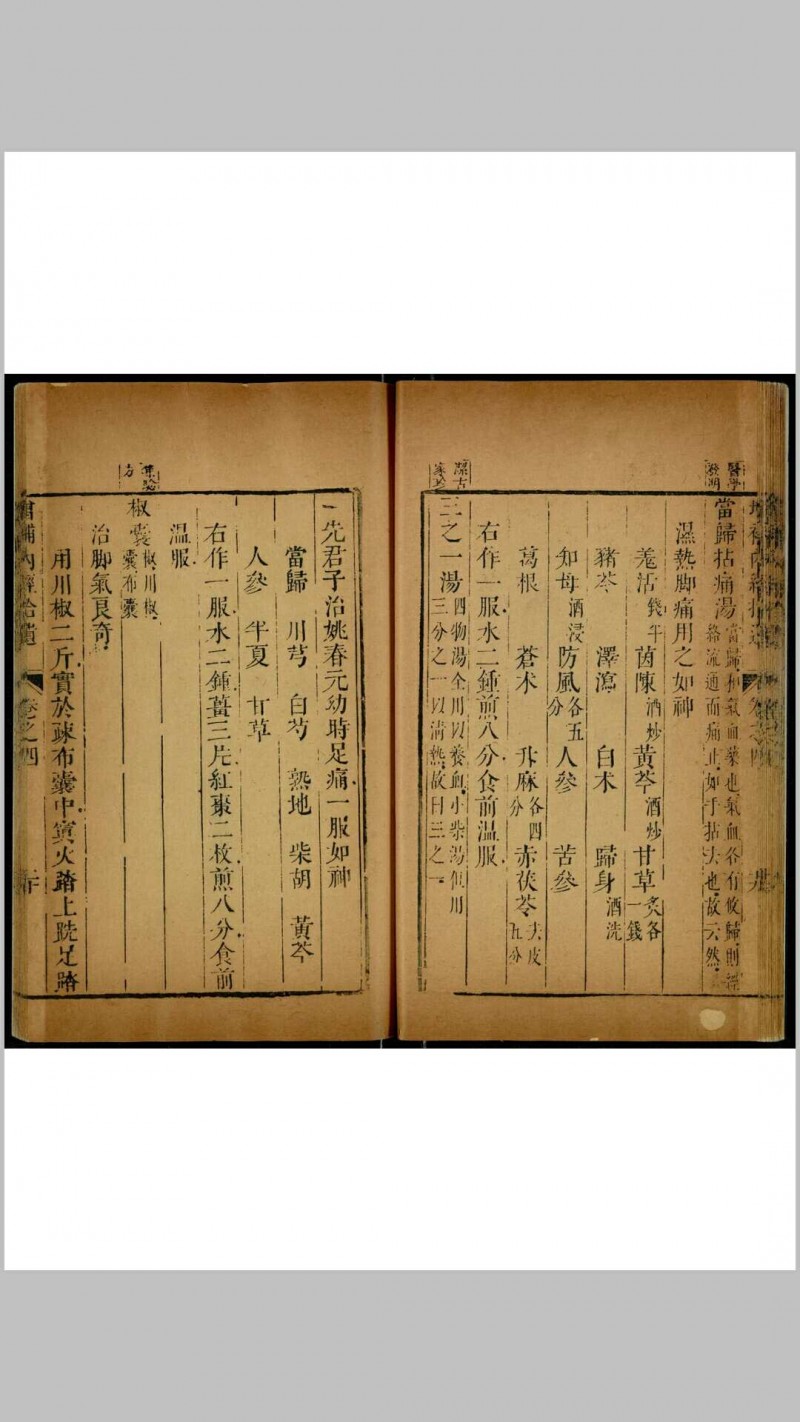 醫學
發明
當歸拈痛湯 當歸和氣血藥也氣血各有攸歸則經
絡流通而痛止如手拈去也故云然
濕熱脚痛用之如神
羗活 錢半 茵陳 酒炒 黃芩 酒炒 甘草 炙各一錢
豬苓 澤瀉 白术 歸身 酒洗
知母 酒浸 防風 各五分 人參 苦參
葛根 蒼术 升麻 各四分 赤茯苓 去皮五分
右作一服水二鍾煎八分食前温服
潔古
家珍
三之一湯 四物湯全用以養血小柴湯但用
三分之一以清熱故曰三之一
一先君子治姚春元幼時足痛一服如神
當歸 川芎 白芍 熟地 柴胡 黃芩
人參 半夏 甘草
右作一服水二鍾薑三片紅棗二枚煎八分食前
温服
集驗
方
椒囊 椒川椒
囊布囊
治脚氣良奇
用川椒二斤實於踈布囊中寘火踏上跣足踏
增補內經拾遺 卷之四